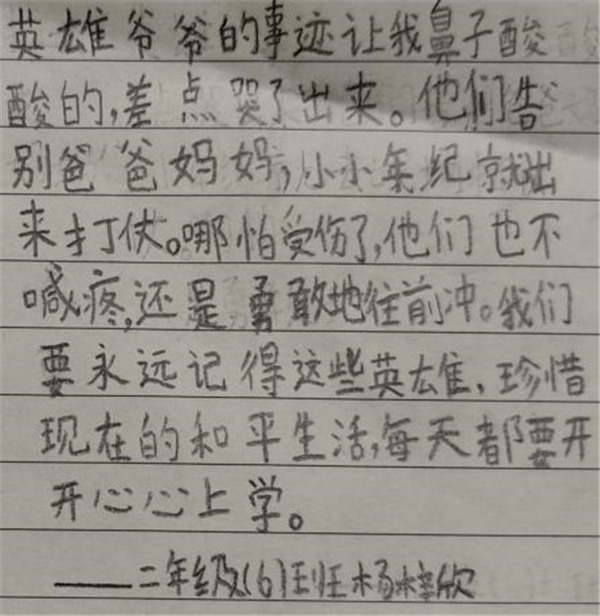 英雄爷爷的事迹让我鼻子酸
酸的,差点哭了出来。他们告
别爸爸妈妈,小小年纪就出
来打仗。哪怕受伤了,他们也不
喊疼,还是勇敢地往前冲。我们
要永远记得这些英雄、珍惜
现在的和平生活,每天都要开
开心心上学。
——二年级(6)班杨梓欣